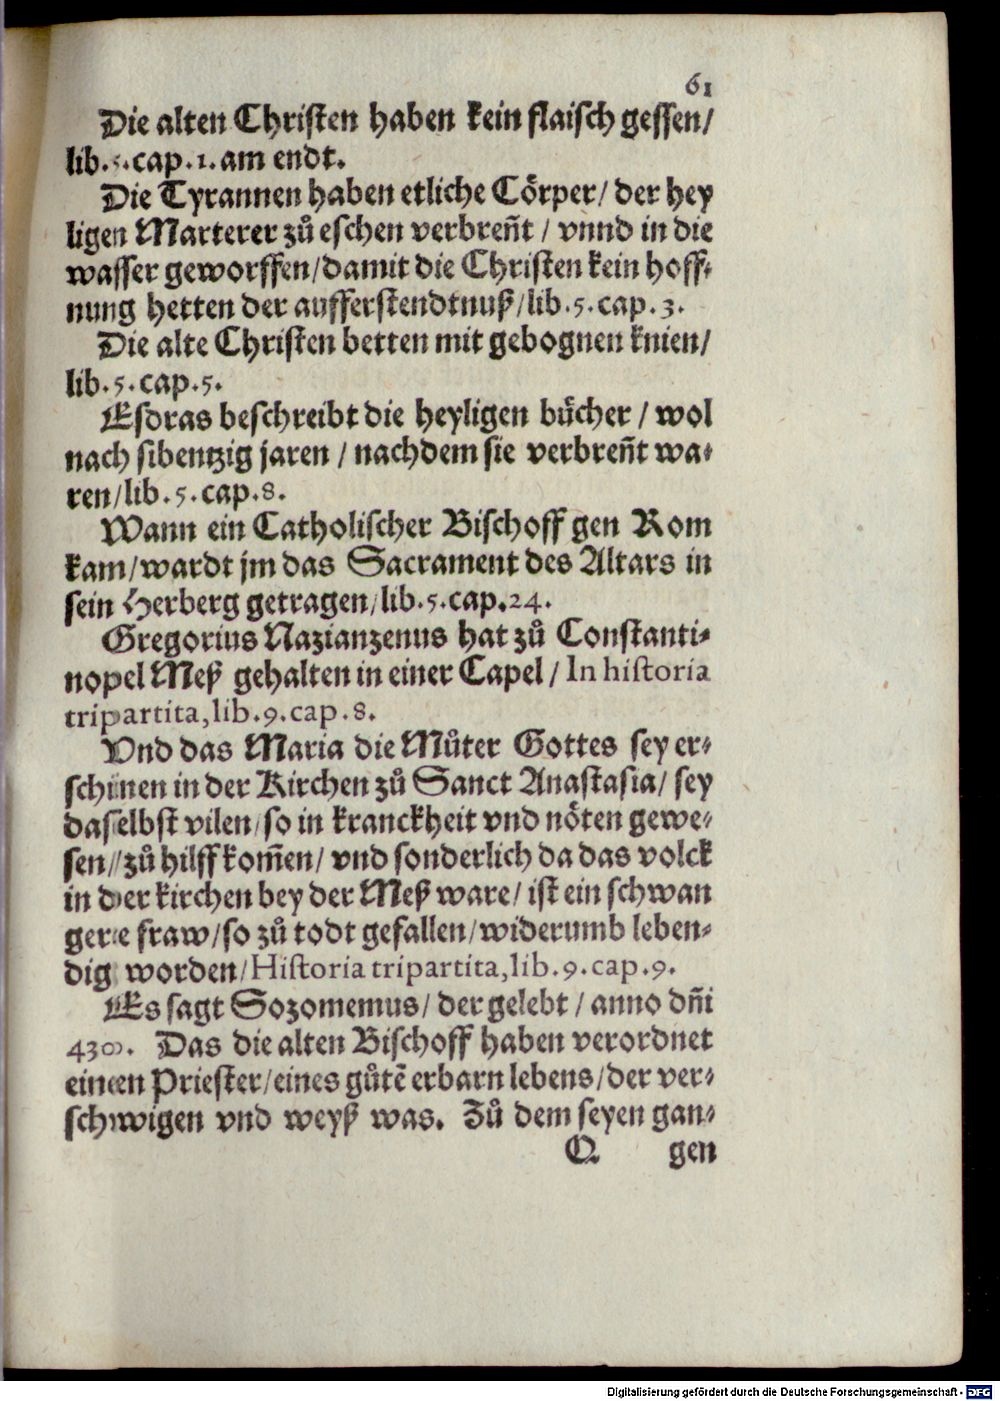 61
Die alten Christen haben kein flaisch gessen/
lib.5.cap.1.am endt.
Die Tyrannen haben etliche Cörper/ der hey
ligen Marterer zů eschen verbren̄t / vnnd in die
wasser geworffen/damit die Christen kein hoff-
nung hetten der aufferstendtnuß/lib.5.cap.3.
Die alte Christen betten mit gebognen knien/
lib.5.cap.5.
Esdras beschreibt die heyligen bůcher / wol
nach sibentzig jaren / nachdem sie verbren̄t wa-
ren/lib.5.cap.8.
Wann ein Catholischer Bischoff gen Rom
kam/wardt jm das Sacrament des Altars in
sein Herberg getragen/lib.5.cap.24.
Gregorius Nazianzenus hat zů Constanti-
nopel Meß gehalten in einer Capel / In historia
tripartita,lib.9.cap.8.
Vnd das Maria die Můter Gottes sey er-
schinen in der Kirchen zů Sanct Anastasia/ sey
daselbst vilen/so in kranckheit vnd nöten gewe-
sen/zů hilff kom̄en/ vnd sonderlich da das volck
in der kirchen bey der Meß ware/ ist ein schwan
gere fraw/so zů todt gefallen/widerumb leben-
dig worden/Historia tripartita,lib.9.cap.9.
Es sagt Sozomemus/ der gelebt / anno dn̄i
430. Das die alten Bischoff haben verordnet
einen Priester/eines gůtē erbarn lebens/der ver-
schwigen vnd weyß was. Zů dem seyen gan-
Q gen
Digitalisierung gefördert durch die Deutsche Forschungsgemeinschaft - DFG